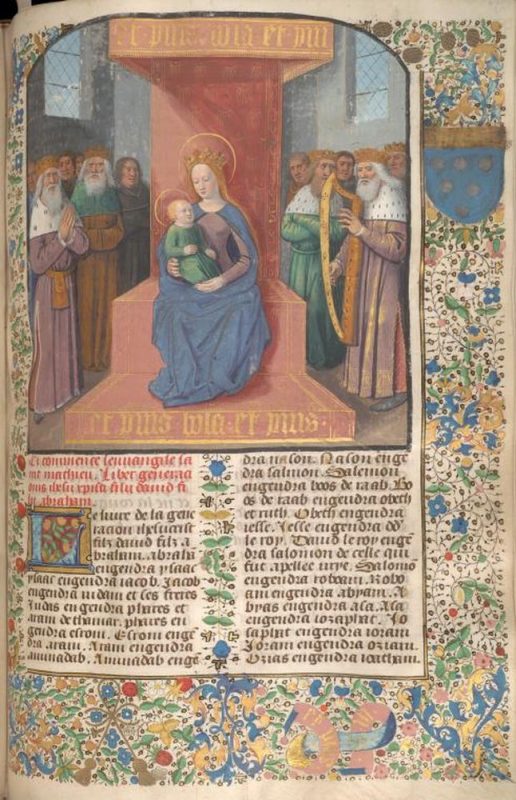 et puis cela et puis
et puis cela et puis
Ci commence leuuangile sa
int mathieu. Liber genera
onis ihesu xpisti filii dauid fi
lii abraham.
Le liure de la gene
racion ihesucrist
filz dauid filz a
braham. Abraha
engendra ysaac
ysaac engendra iacob. Jacob
engendra iudam et ses freres
Judas engendra phares et
aram de thamar. phares en
gendra esrom. Esrom enge
dra aram. Aram engendra
aminadab. Aminadab enge
dra nason. Nason enge
dra salmon. Salemon
engendra boos de raab. Bo
os de raab engendra obeth
et ruth. Obeth engendra
iesse. Jesse engendra dd
le roy. Dauid le roy enge
dra salomon de celle qui
fut apellee vrye. Salomo
engendra roboam. Robo
am engendra abyam. A
byas engendra asa. Asa
engendra iozaphat. Jo
saphat engendra ioram
Joram engendra oziam.
Ozias engendra ioatham.